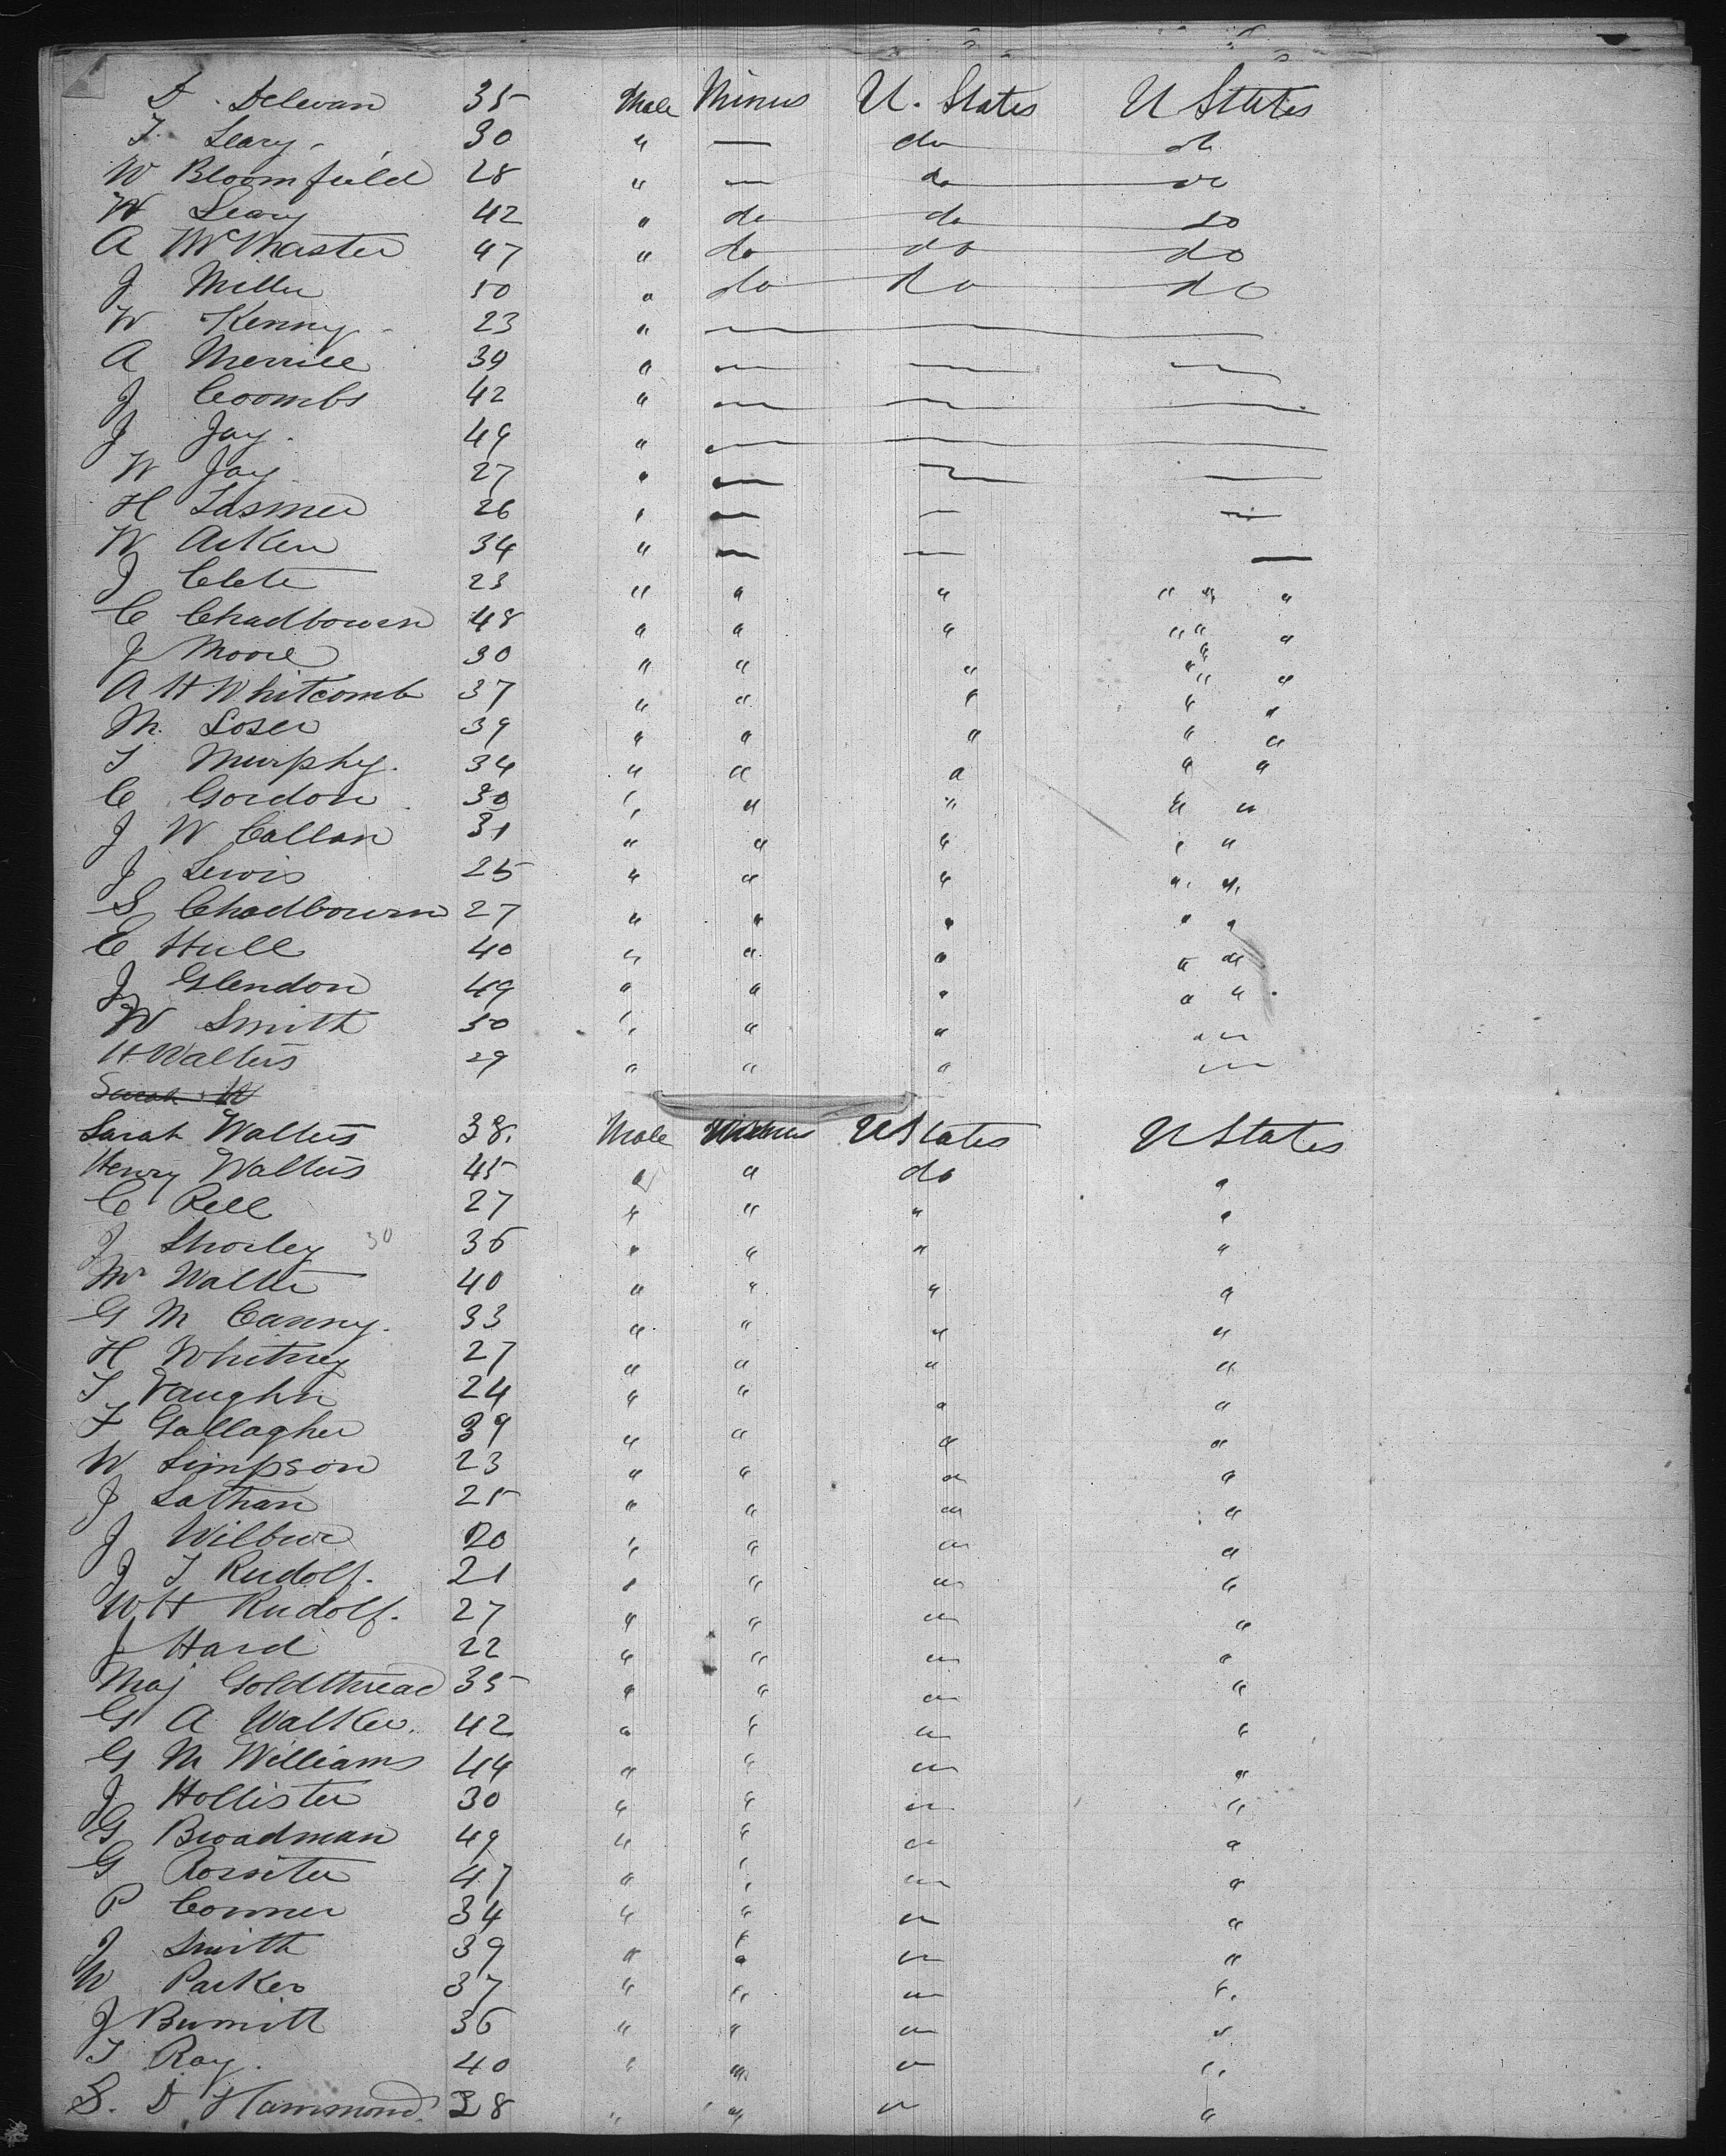 D. Delevan 35 Male Minus U. States U States
T. Leary 30 " — do do
W Bloomfield 28 " — do do
W Leary 42 " do do do
A McMaster 47 " do do do
J Miller 50 " do do do
W Kenny 23 " — — —
A Merrill 39 " — — —
J Coombs 42 " — — —
J Jay. 49 " — — —
W Jay 27 " — — —
H 26 " — — —
W Aiken 34 " — — —
J 23 " " " " " "
C Chadbourn 48 " " " " " "
J Moore 30 " " " " " "
A H Whitcomb 37 " " " " "
M. Loser 39 " " " " "
T Murphy. 34 " " " " "
C Gordon 30 " " " " "
J W Callan 31 " " " " "
J Lewis 25 " " " " "
S Chadbourn 27 " " " " "
C Hull 40 " " " " "
J Glendon 49 " " " " "
W Smith 30 " " " " "
H. Walters 29 " " " "
Sarah W
Sarah Walters 38. Male Minus U States U States
Henry Walters 45 " " do "
C Rell 27 " " " "
J Shorley 30 36 " " " "
Mr Walter 40 " " " "
G M Canny. 33 " " " "
H Whitney 27 " " " "
T Vaughn 24 " " " "
F Gallagher 39 " " " "
W Simpson 23 " " " "
J Lathan 25 " " " "
J Wilbur 20 " " " "
J T Rudolf. 21 " " " "
W H Rudolf. 27 " " " "
J Hard 22 " " " "
Maj Goldthread 35 " " " "
G A Walker. 42 " " " "
G M Williams 44 " " " "
J Hollister 30 " " " "
G Broadman 49 " " " "
G Rossiter 47 " " " "
P Conner 34 " " " "
J Smith 39 " " " "
W Parker 37 " " " "
J 36 " " " "
T Ray. 40 " " " "
S. D Hammond. 38 " " " "